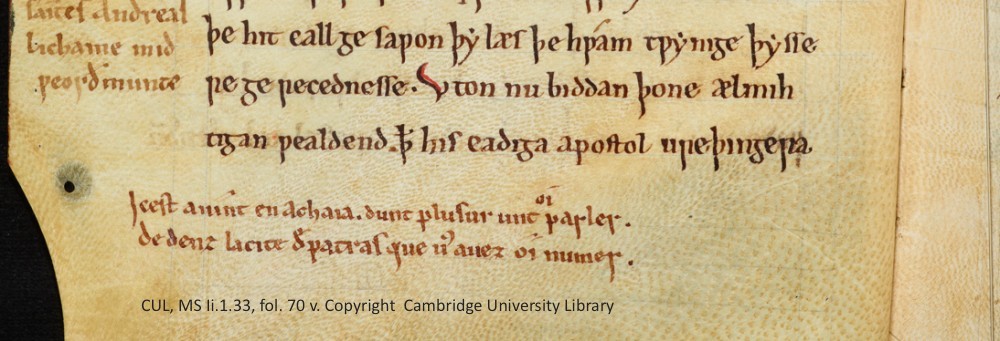 saıtes Andreas
lichame mid
þe hit eall ge sapon þẏ læs þe hpám tpẏnige þẏsse
peordmunte
re ge reccednesse. Uton nu biddan þone ælmih
tigan pealdend ꝥ his eadiga apostol ure þingera
Icest auint en Achaia. dunt plusur unt oi parler.
de denz la cite de patras que uꝰ auez oi numer.
CUL, MS Ii.1.33, fol. 70 v. Copyright Cambridge University Library